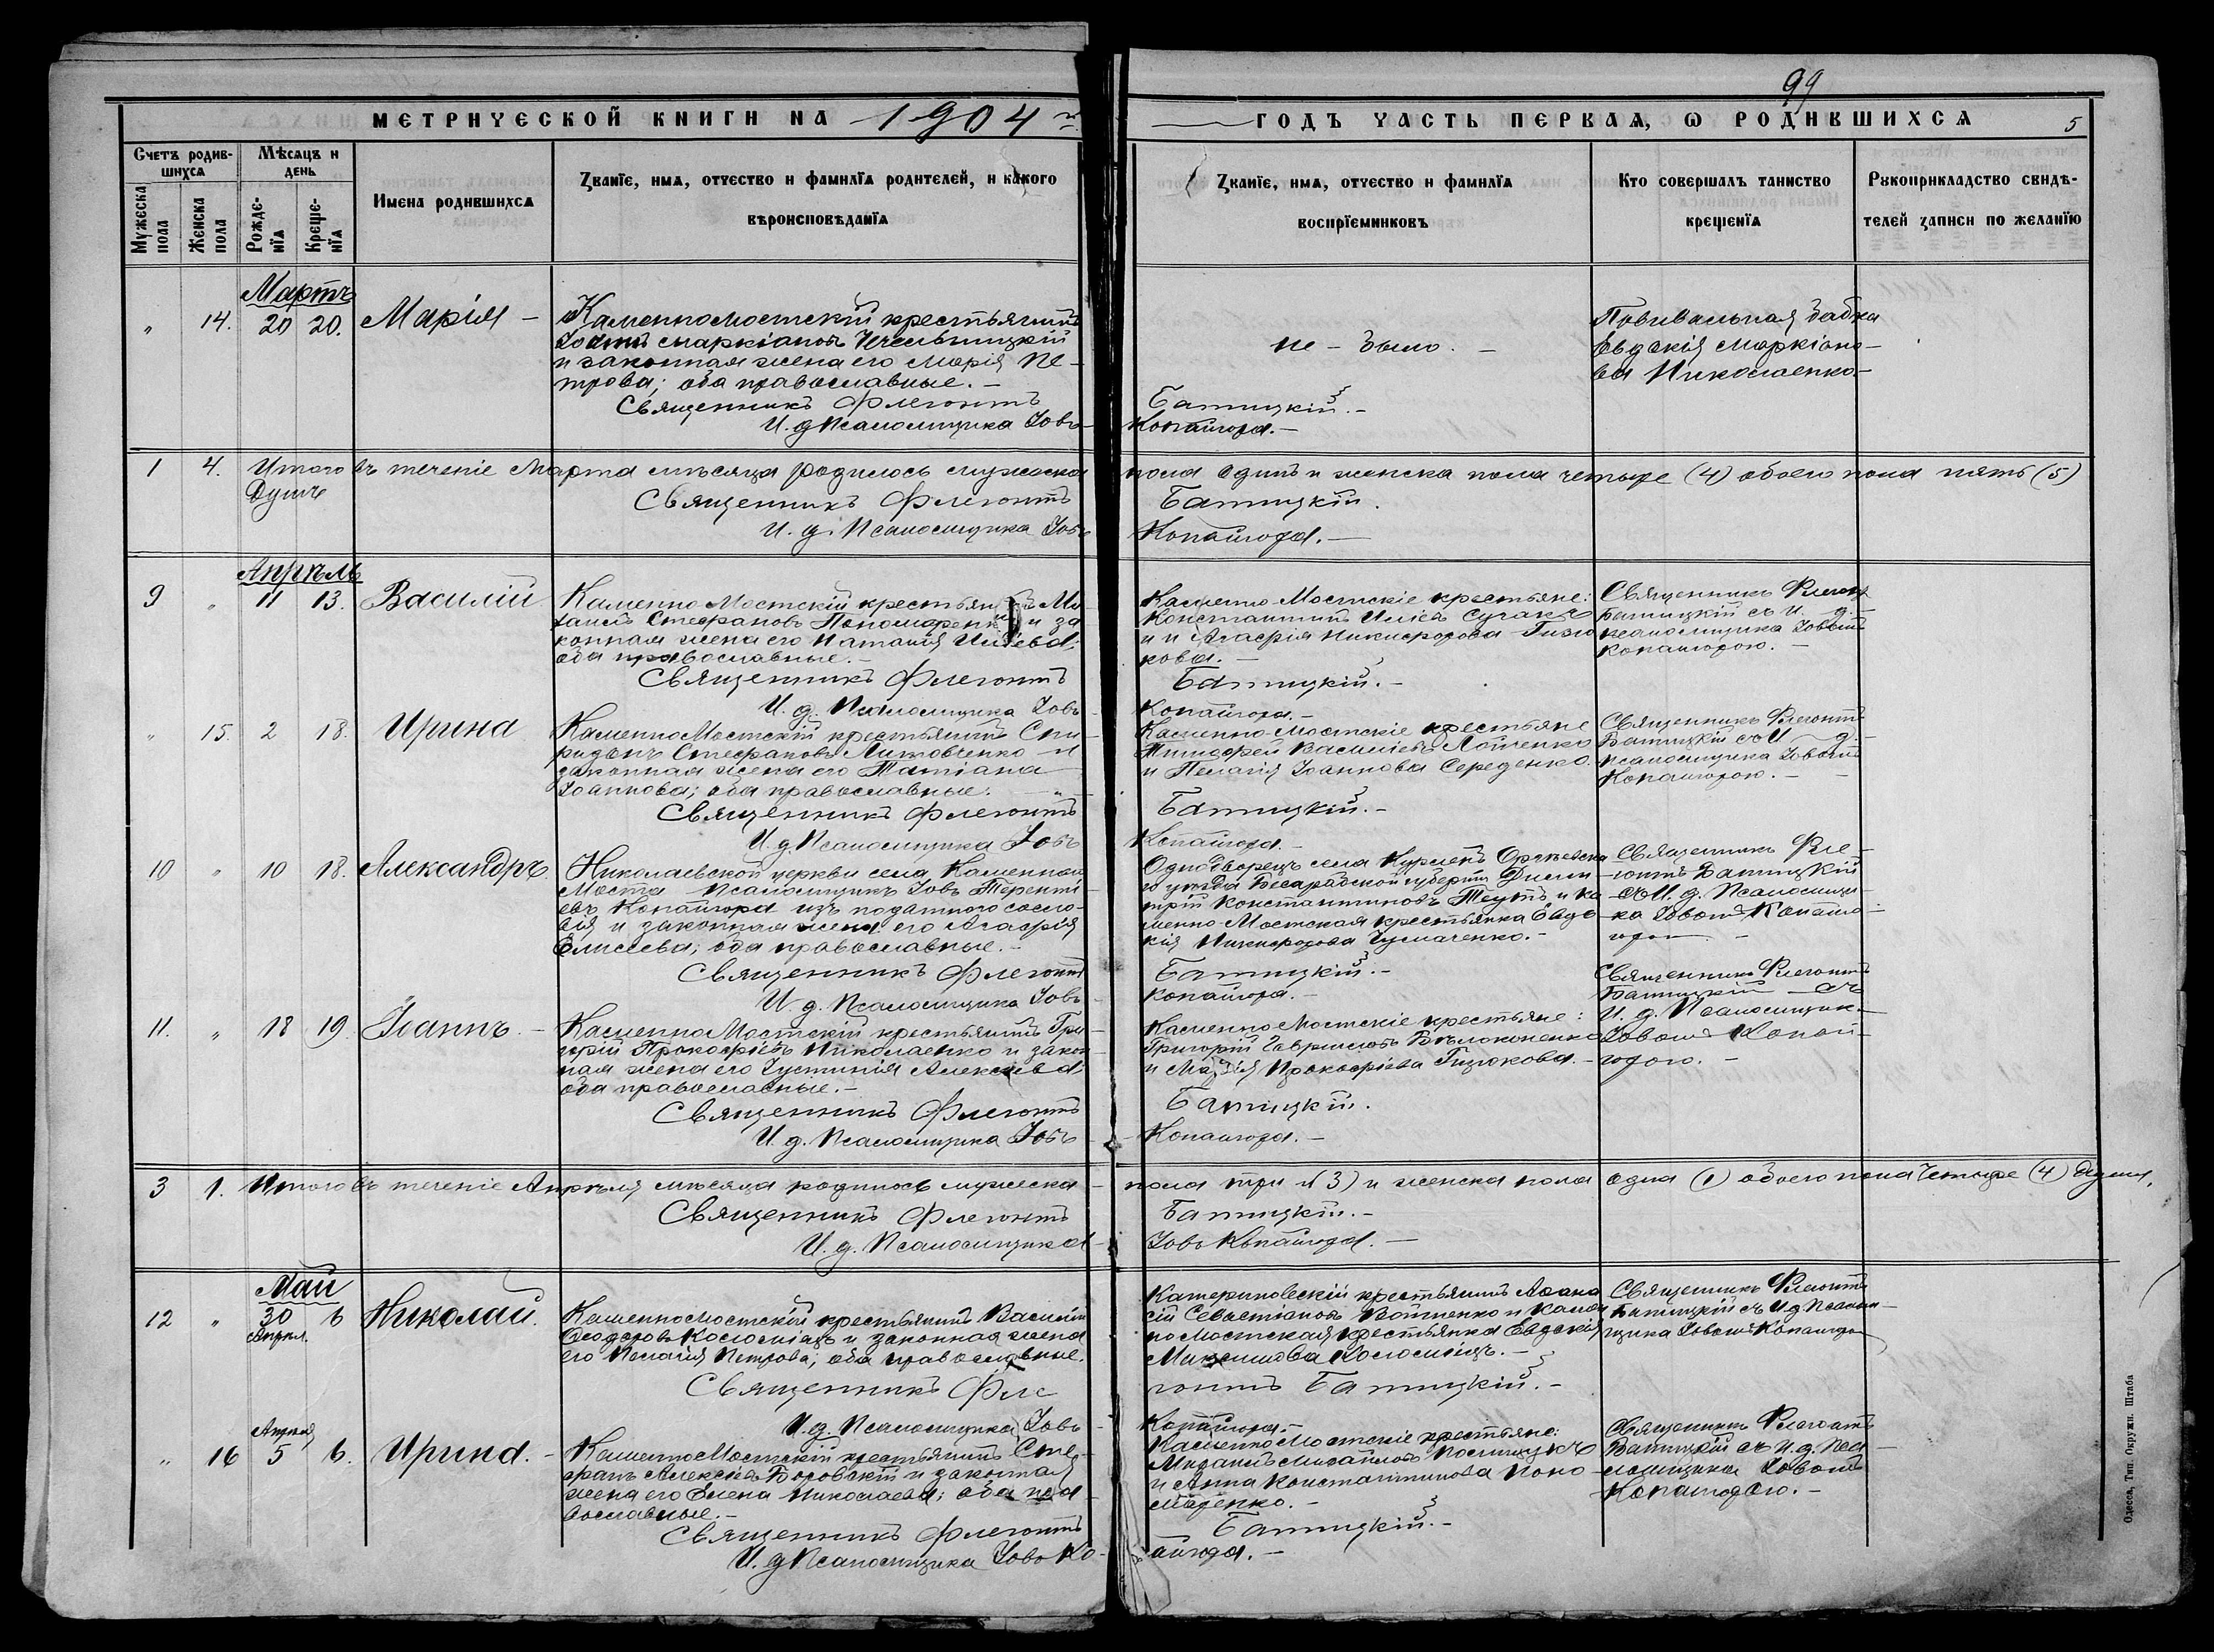 99
МЕТРИЧЕСКОЙ КНИГИ НА 1904 й
ГОДЪ ЧАСТЬ ПЕРВАЯ, Ѡ РОДИВШИХСЯ
5
Счетъ родив-
шихся
Мѣсяцъ и
день
Мужеска
пола
Женска
пола
Рожде-
нїя
Креще-
нїя
Имена родившихся
Званїе, имя, отчество и фамилїя родителей, и какого
вѣроисповѣданїя
Званїе, имя, отчество и фамилїя
воспрїемниковъ
Кто совершалъ таинство
крещенїя
Рукоприкладство свидѣ-
телей записи по желанїю
Мартъ
" 14. 20 20. Марія -
КаменноМостскій крестьянинъ
Маркіановъ
и законная жена его Марія Пе-
трова; оба православные. -
Священникъ Флегонтъ
И. д. Псаломщика Іовъ
не - было. -
Батицкій. -
Копайгора. -
Повивальная бабка
Евдокія Маркіано-
ва Николаенко. -
1 4. Итого въ теченіе Марта мѣсяца родилось мужеска
пола одинъ и женска пола четыре (4) обоего пола пять (5)
Душъ
Священникъ Флегонтъ
Батицкій.
И. д. Псаломщика Іовъ
Копайгора. -
Апрѣль
9 " 11 13. Василій
Каменно Мостскій крестьянинъ Ми-
хаилъ Стефановъ Пономаренко и за
конная жена его Наталія Иліева;
оба православные. -
Священникъ Флегонтъ
И. д. Псаломщика Іовъ
Каменно Мостскіе крестьяне:
Константинъ Иліевъ Сугакъ
и Агафія Никифорова Гизю
кова. -
Батицкій. -
Копайгора. -
Священникъ Флегонтъ
Батицкій съ И. д.
псаломщика Іовомъ
Копайгорою. -
" 15. 2 18. Ирина
КаменноМостскій крестьянинъ Спи-
ридонъ Стефановъ Литовченко и
законная жена его Татіана
Іоаннова; оба православные. -
Священникъ Флегонтъ
И. д. Псаломщика Іовъ
Каменно-Мостскіе крестьяне
Тимофей Васильевъ
и Пелагія Іоаннова Середенко.
Батицкій. -
Копайгора -
Священникъ Флегонтъ
Батицкій съ И. д.
псаломщика Іовомъ
Копайгорою. -
10 " 10 18. Александръ.
Николаевской церкви села Каменнаго
Моста Псаломщикъ Іовъ Теренті-
евъ Копайгора изъ податного сосло-
вія и законная жена его Агафія
Елисеева; оба православные. -
Священникъ Флегонтъ
И. д. Псаломщика Іовъ
Однодворецъ села Оргѣевска
го уѣзда Бесарабской губерніи Дими
трій Константиновъ и Ка
менно Мостская крестьянка Евдо
кія Никифорова Чумаченко. -
Батицкій. -
Копайгора. -
Священникъ Фле-
гонтъ Батицкій
съ И. д. Псаломщи-
ка Іовомъ Копайго-
рою -
11. " 18 19. Іоаннъ. -
КаменноМостскій крестьянинъ Гри-
горій Прокофіевъ Николаенко и закон-
ная жена его Іустинія Алексіева
оба православные. -
Священникъ Флегонтъ
И. д. Псаломщика Іовъ
Каменно Мостскіе крестьяне:
Григорій Гавриловъ Бѣлоконенко
и Марія Прокофіева Гизюкова. -
Батицкій.
Копайгора. -
Священникъ Флегонтъ
Батицкій съ
И. д. Псаломщика
Іовомъ Копай-
горою. -
3 1. Итого въ теченіе Апрѣля мѣсяца родилось мужеска
пола три (3) и женска пола одна (1) обоего пола Четыре (4) души.
Священникъ Флегонтъ
Батицкій. -
И. д. Псаломщика
Іовъ Копайгора. -
Май
12 " 30 6 Николай.
Апрѣл.
КаменноМостскій крестьянинъ Василій
Ѳеодоровъ Коломіецъ и законная жена
его Пелагія Петрова; оба православные.
Священникъ Фле
И. д. Псаломщика Іовъ
Катериновскій крестьянинъ Аѳана
сій Севастіановъ Войтенко и Камен
но Мостская крестьянка Евдокія
Максимова Коломіецъ. -
гонтъ Батицкій. -
Копайгора. -
Священникъ Флегонтъ
Батицкій съ И. д. Псалом-
щика Іовомъ Копайгорою
Апрѣля
" 16 5 6. Ирина. -
КаменноМостскій крестьянинъ Сте-
фанъ Алексіевъ Боровскій и законная
жена его Елена Николаева; оба пра-
вославные. -
Священникъ Флегонтъ
И. д. Псаломщика Іовъ Ко-
Каменно Мостскіе крестьяне:
Михаилъ Михайловъ
и Анна Константинова Поно-
маренко. -
Батицкій. -
пайгора. -
Священникъ Флегонтъ
Батицкій съ И. д. Пса-
ломщика Іовомъ
Копайгорою. -
Одесса, Тип. Окружн. Штаба